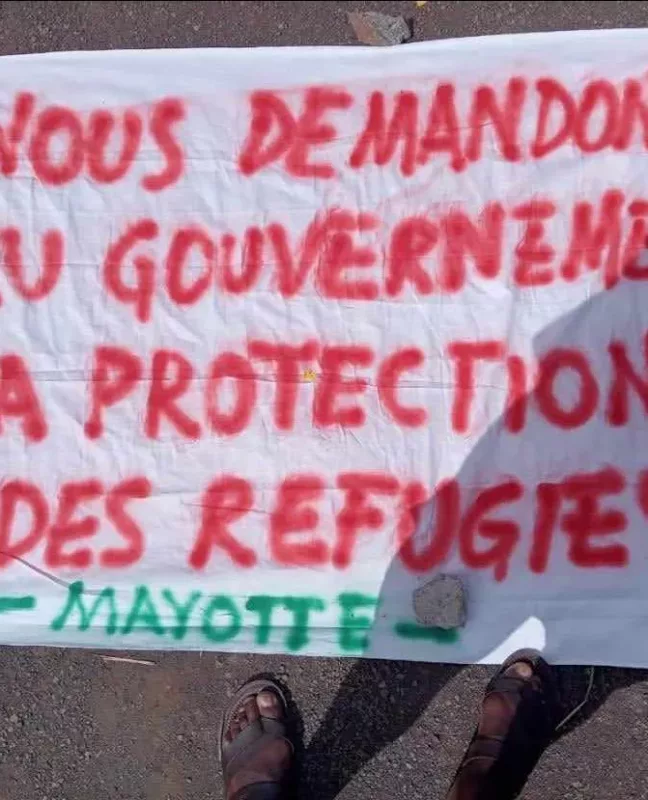 NOUS DEMANDON
AU GOUVERNEME
LA PROTECTION
DES REFUGIE
- MAYOTTE -